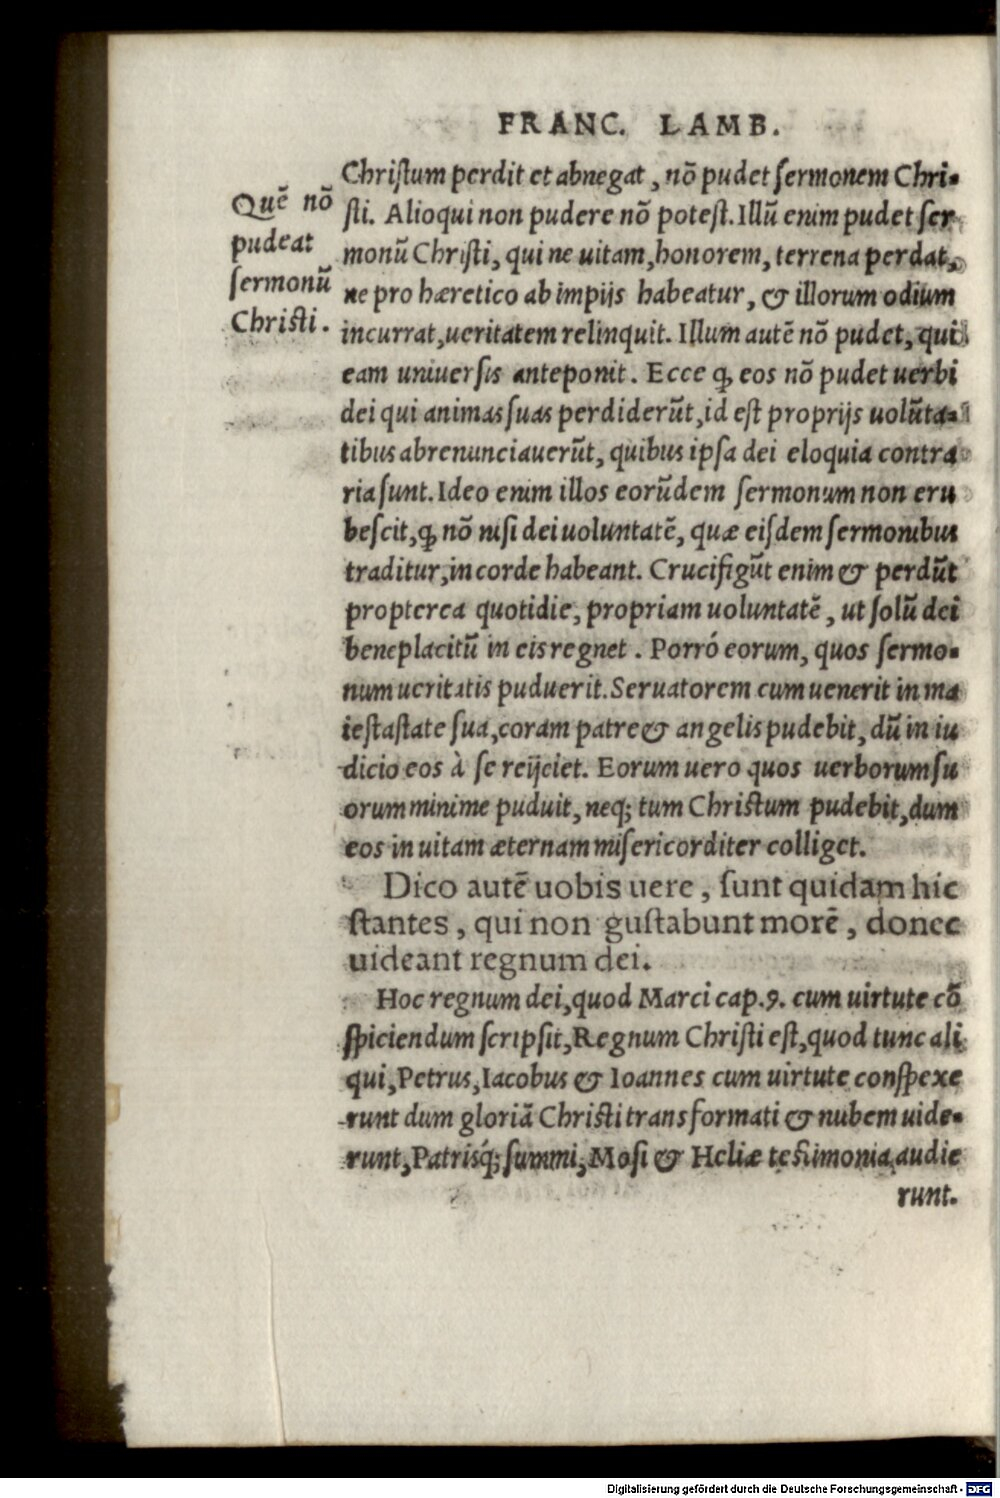 FRANC. LAMB.
Quē nō
pudeat
sermonū
Christi.
Christum perdit et abnegat, nō pudet sermonem Chri-
sti. Alioqui non pudere nō potest. Illū enim pudet ser
monū Christi, qui ne uitam, honorem, terrena perdat,
ne pro hæretico ab impijs habeatur, & illorum odium
incurrat, ueritatem relinquit. Illum autē nō pudet, qui
eam uniuersis anteponit. Ecce ꝙ eos nō pudet uerbi
dei qui animas suas perdiderūt, id est proprijs uolūta-
tibus abrenunciauerūt, quibus ipsa dei eloquia contra
ria sunt. Ideo enim illos eorūdem sermonum non eru
bescit, ꝙ nō nisi dei uoluntatē, quæ eisdem sermonibus
traditur, in corde habeant. Crucifigūt enim & perdūt
propterea quotidie, propriam uoluntatē, ut solū dei
beneplacitū in eis regnet. Porró eorum, quos sermo-
num ueritatis puduerit. Seruatorem cum uenerit in ma
iestastate sua, coram patre & angelis pudebit, dū in iu
dicio eos à se reijciet. Eorum uero quos uerborum su
orum minime puduit, neq; tum Christum pudebit, dum
eos in uitam æternam misericorditer colliget.
Dico autē uobis uere, sunt quidam hic
stantes, qui non gustabunt morē, donec
uideant regnum dei.
Hoc regnum dei, quod Marci cap. 9. cum uirtute cō
spiciendum scripsit, Regnum Christi est, quod tunc ali
qui, Petrus, Iacobus & Ioannes cum uirtute conspexe
runt dum gloriā Christi transformati & nubem uide-
runt, Patrisq́; summi, Mosi & Heliæ testimonia audie
runt.
Digitalisierung gefördert durch die Deutsche Forschungsgemeinschaft - DFG